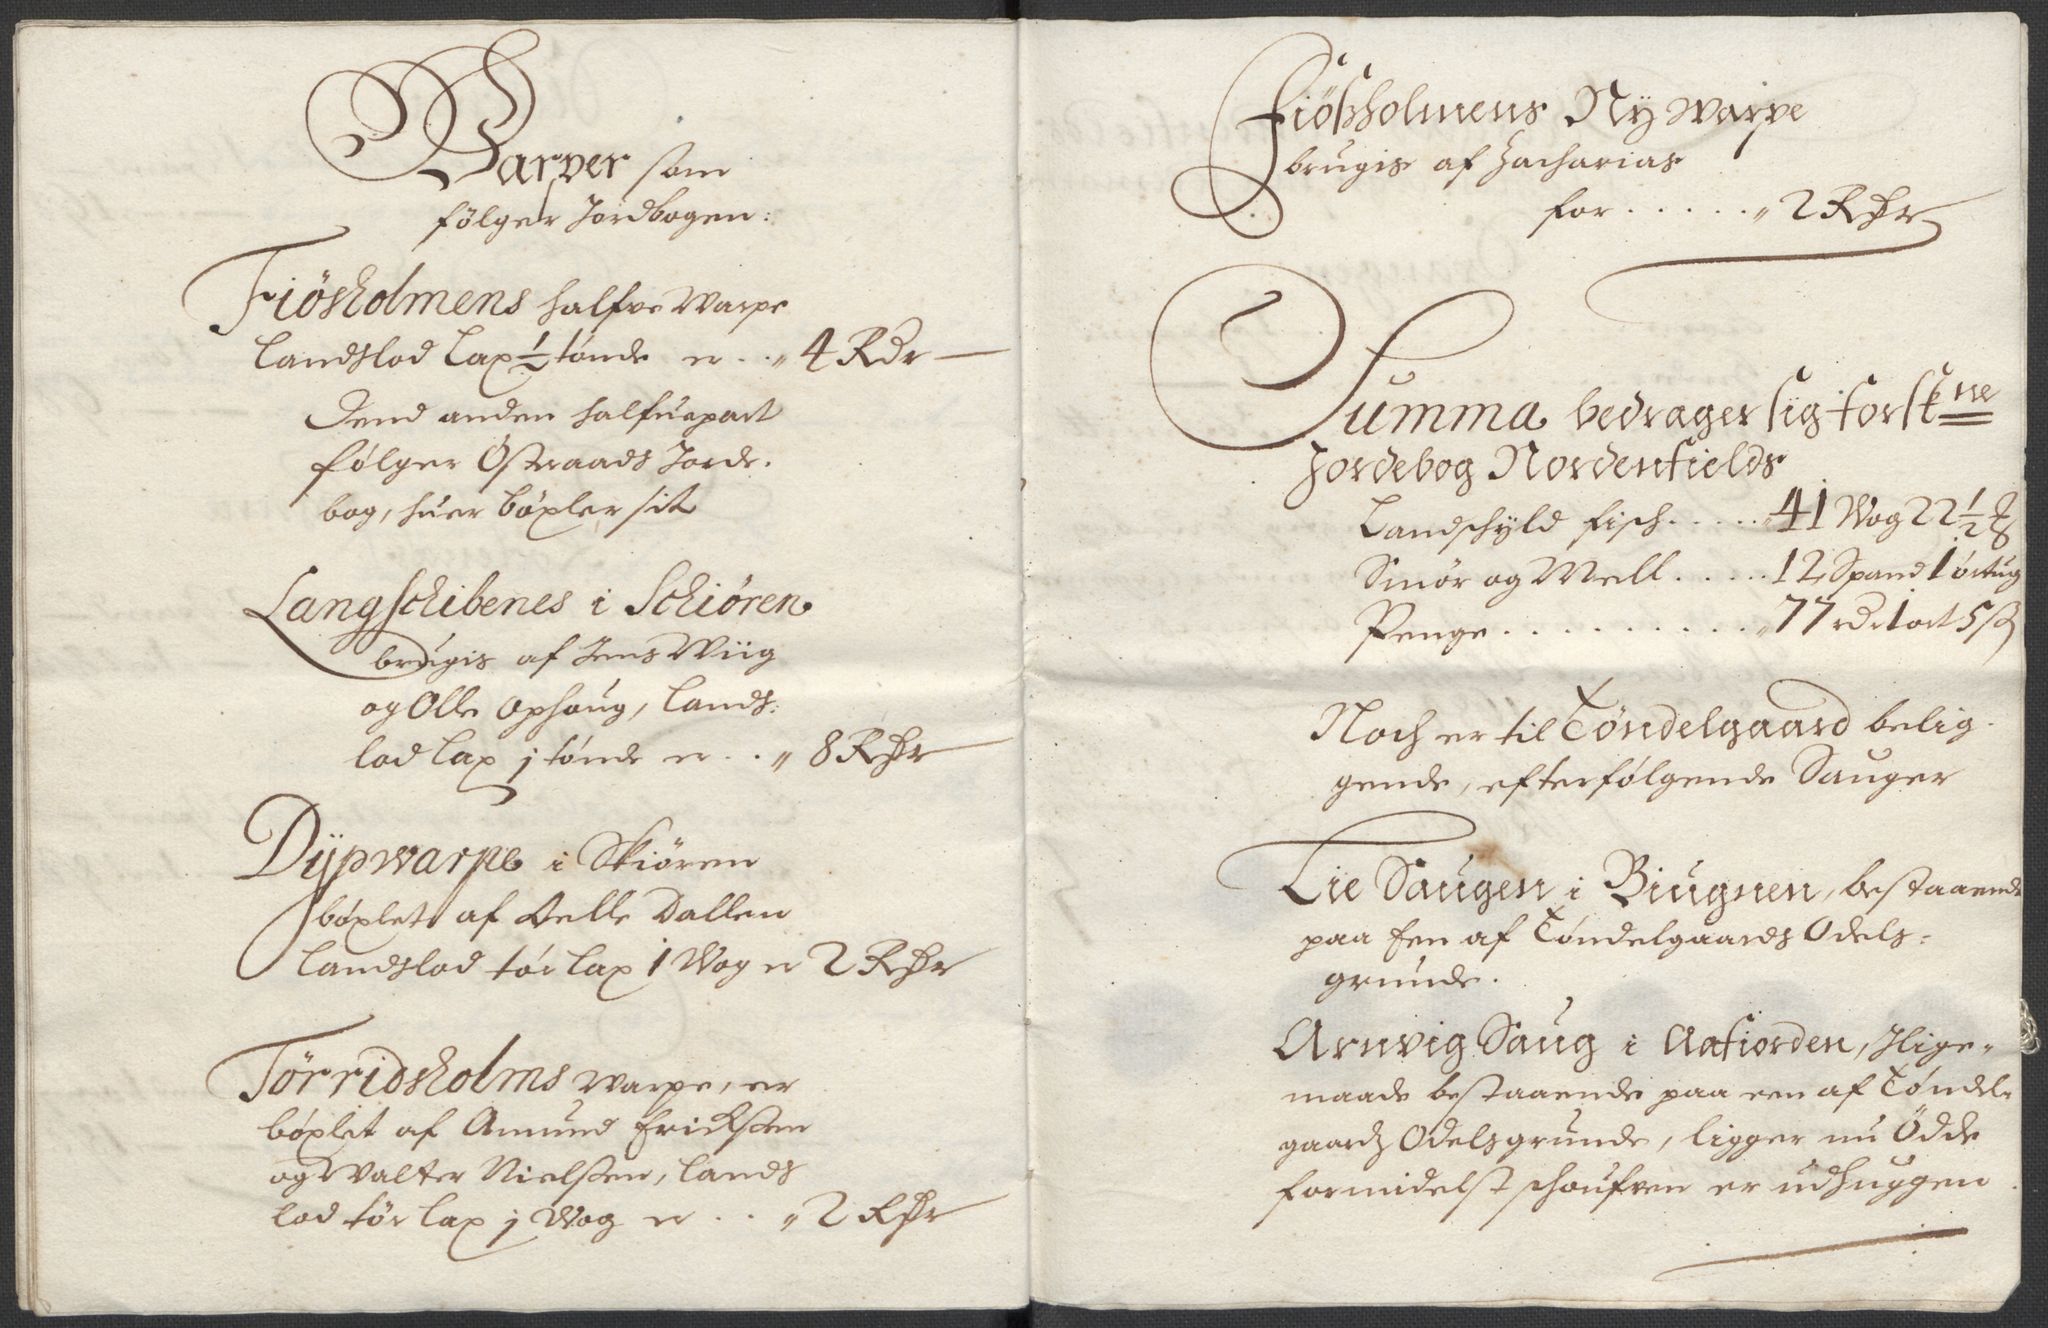 Warper som
følger Jordbogen:
Fiösholmens halfve Warpe
Landslod Lax ½ tönde er . . „ 4 Rdr
Dend anden halfuepart
følger Østraads Jorde-
bog, huer böxler sit
Langschibenes i Schiören
brugis af Jens Wiig
og Olle Ophoug, Lands:
lod Lax 1 tönde er . . „ 8 Rdr
Dÿpwarpe i Skiören
böxlet af Oelle Dallen
Landslod tör Lax 1 Wog er 2 Rdr
Törridsholms Warpe, er
böxlet af Amund Erichssen
og Walter Nielssen, Lands
lod tör Lax 1 Wog er . . „ 2 Rdr
Fiösholmens Nÿ Warpe
brugis af Zacharias
for . . . . . „ 2 Rdr
Summa bedrager sig forskne
Jordebog Nordenfields
Landschyld fisch . . . . . 41 Wog 22½ ℔
Smör og Mell . . . . . 12 Spand 1 örtug
Penge . . . . . . . . . . „ 77 rdr 1 ort 5 ß
Noch er til Töndelgaard belig-
gende, efterfölgende Sauger
Lie Saugen i Biugnen, bestaaende
paa Een af Töndelgaards Odels-
grunde.
Arnvig Saug i Aafiorden, Ilige-
maade bestaaende paa een af Töndel-
gaards Odelsgrunde, ligger nu Ödde
formidelst schoufven er udhuggen